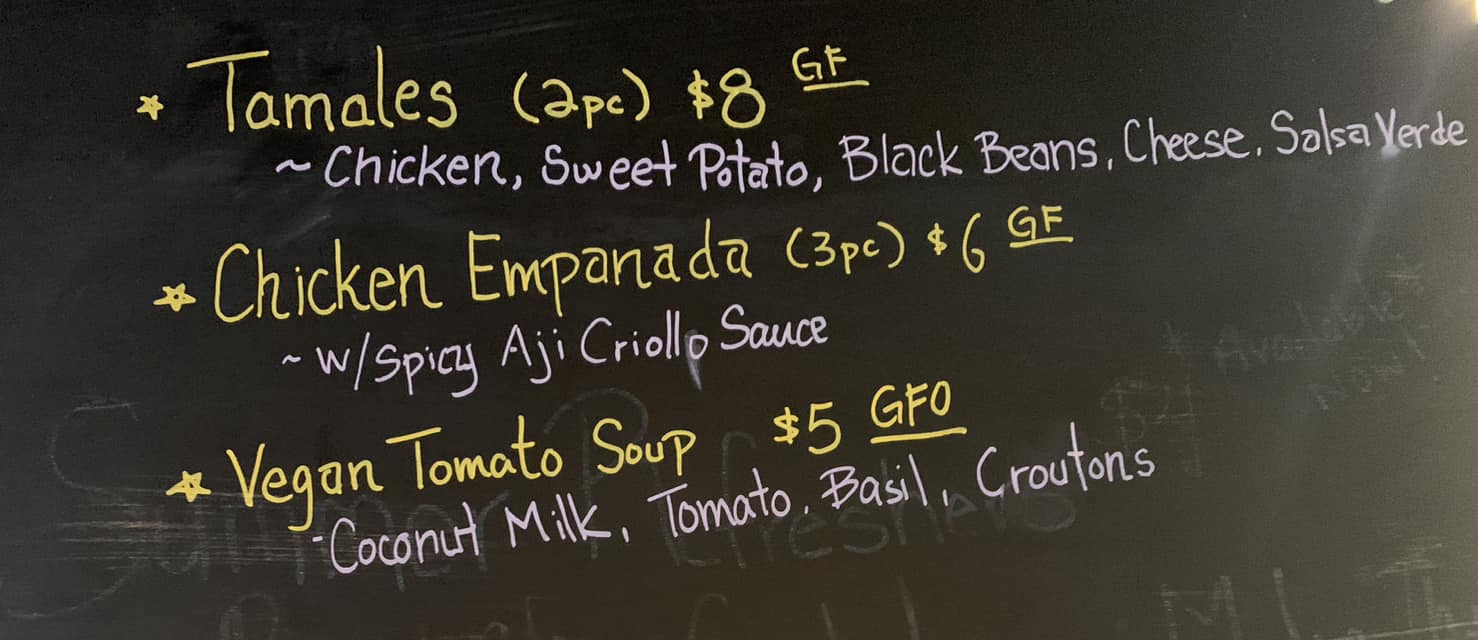 * Tamales (2pc) $8 GF
~ Chicken, Sweet Potato, Black Beans, Cheese, Salsa Verde
* Chicken Empanada (3pc) $6 GF
~ w/Spicy Aji Criollo Sauce
* Vegan Tomato Soup $5 GFO
- Coconut Milk, Tomato, Basil, Croutons
Summer Refreshers